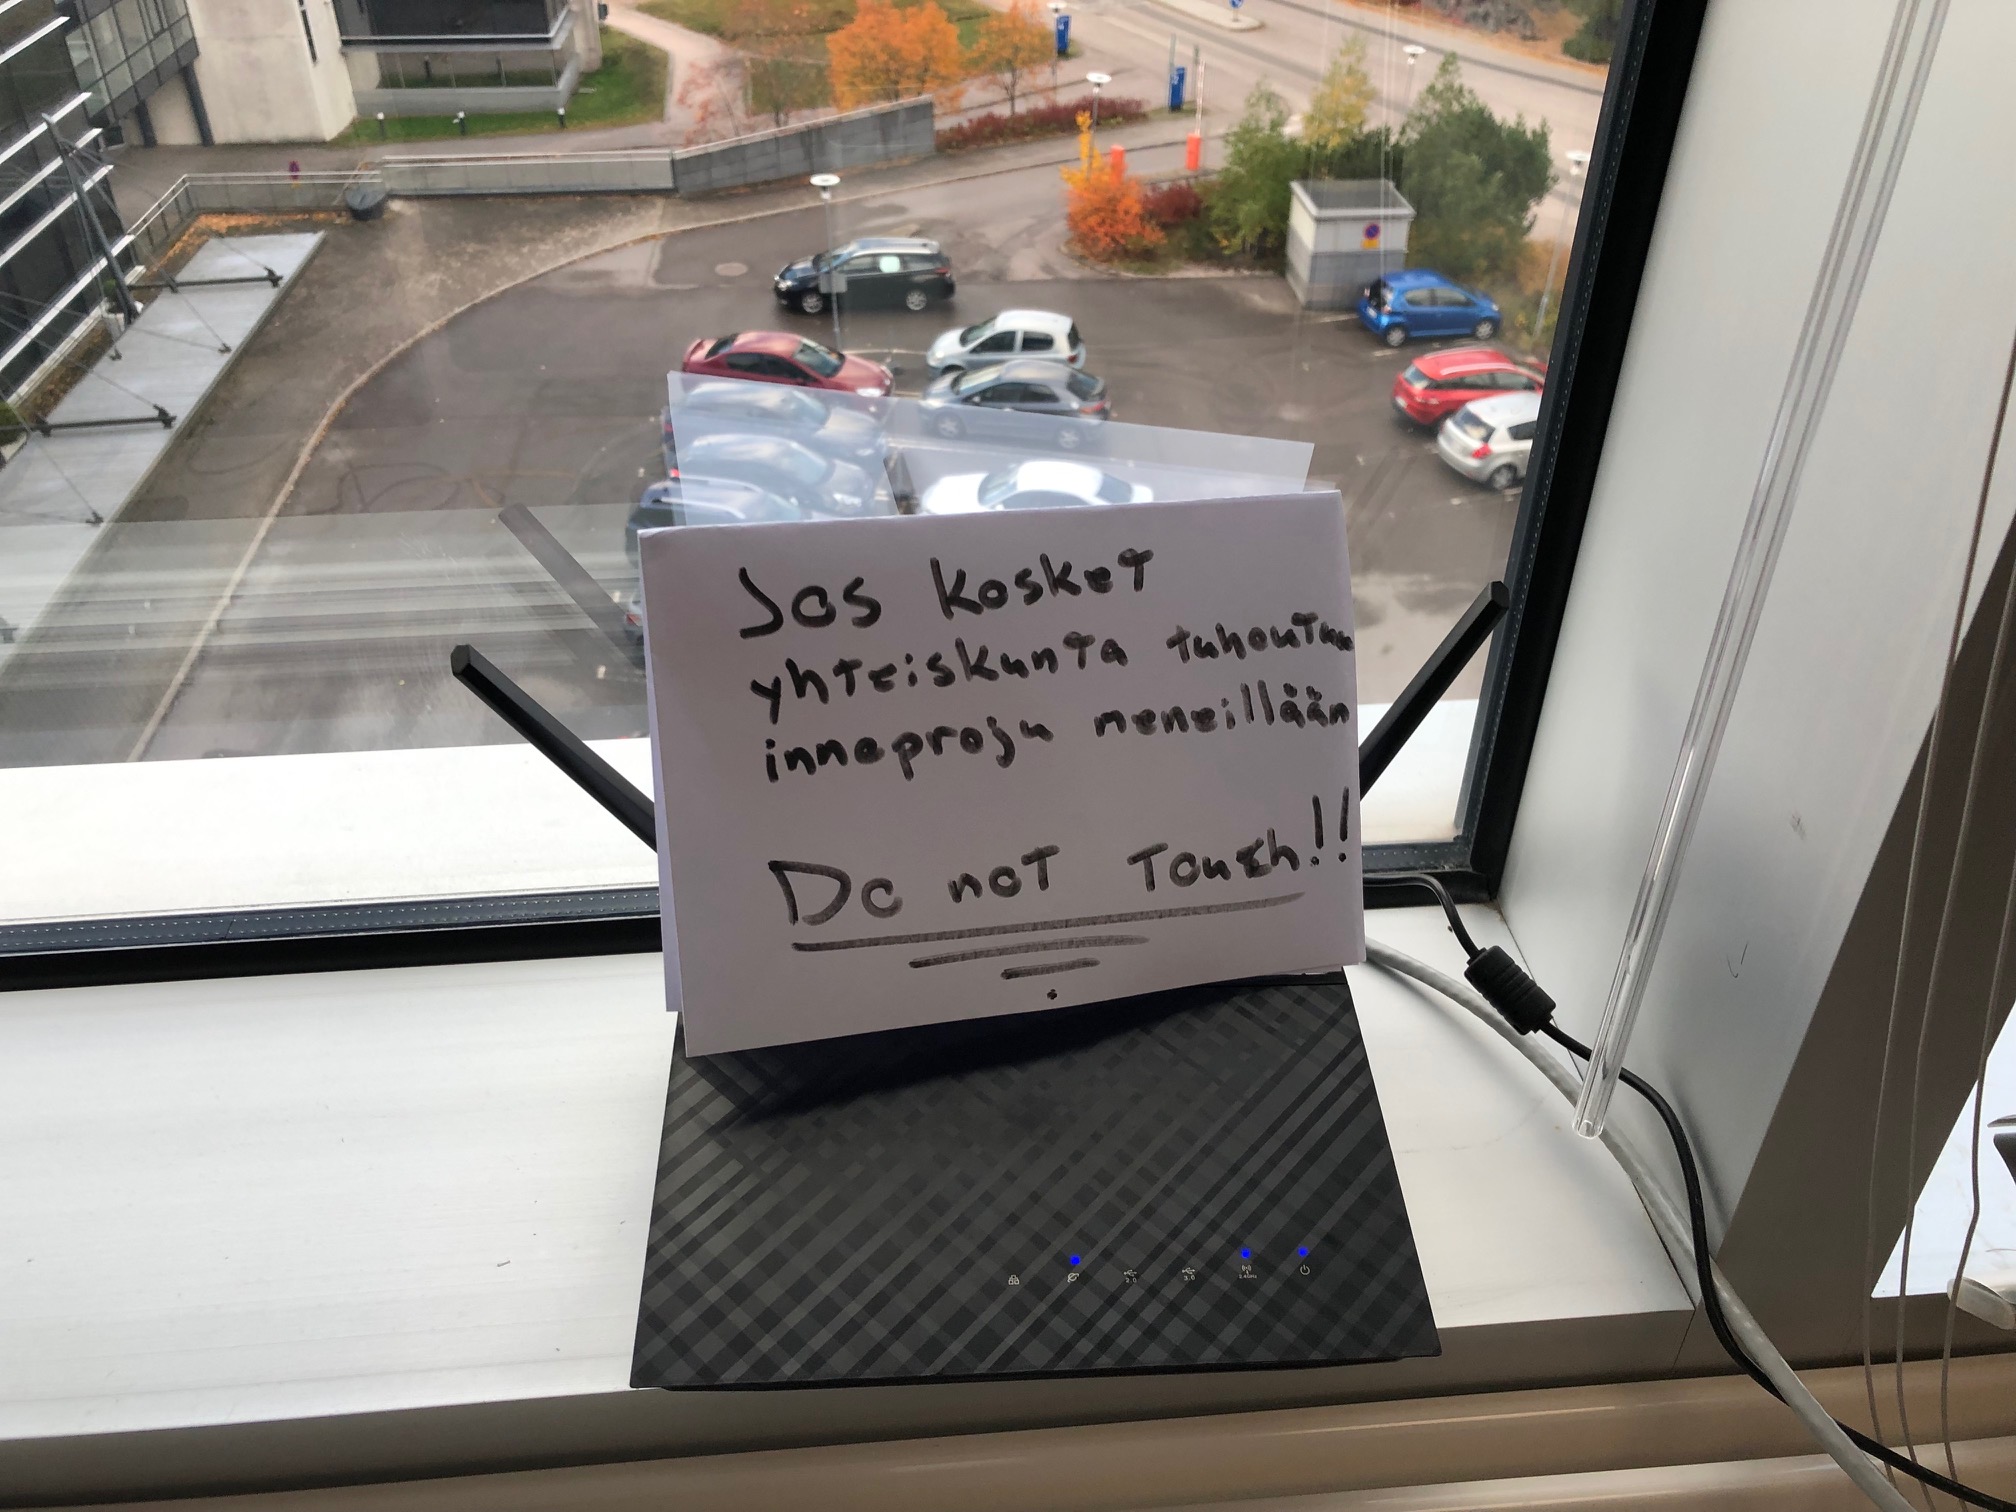 Jos kosket
yhteiskunta tuhoutuu
innoproju meneillään
Do not Touch!!
2.0
3.0
2.4GHz